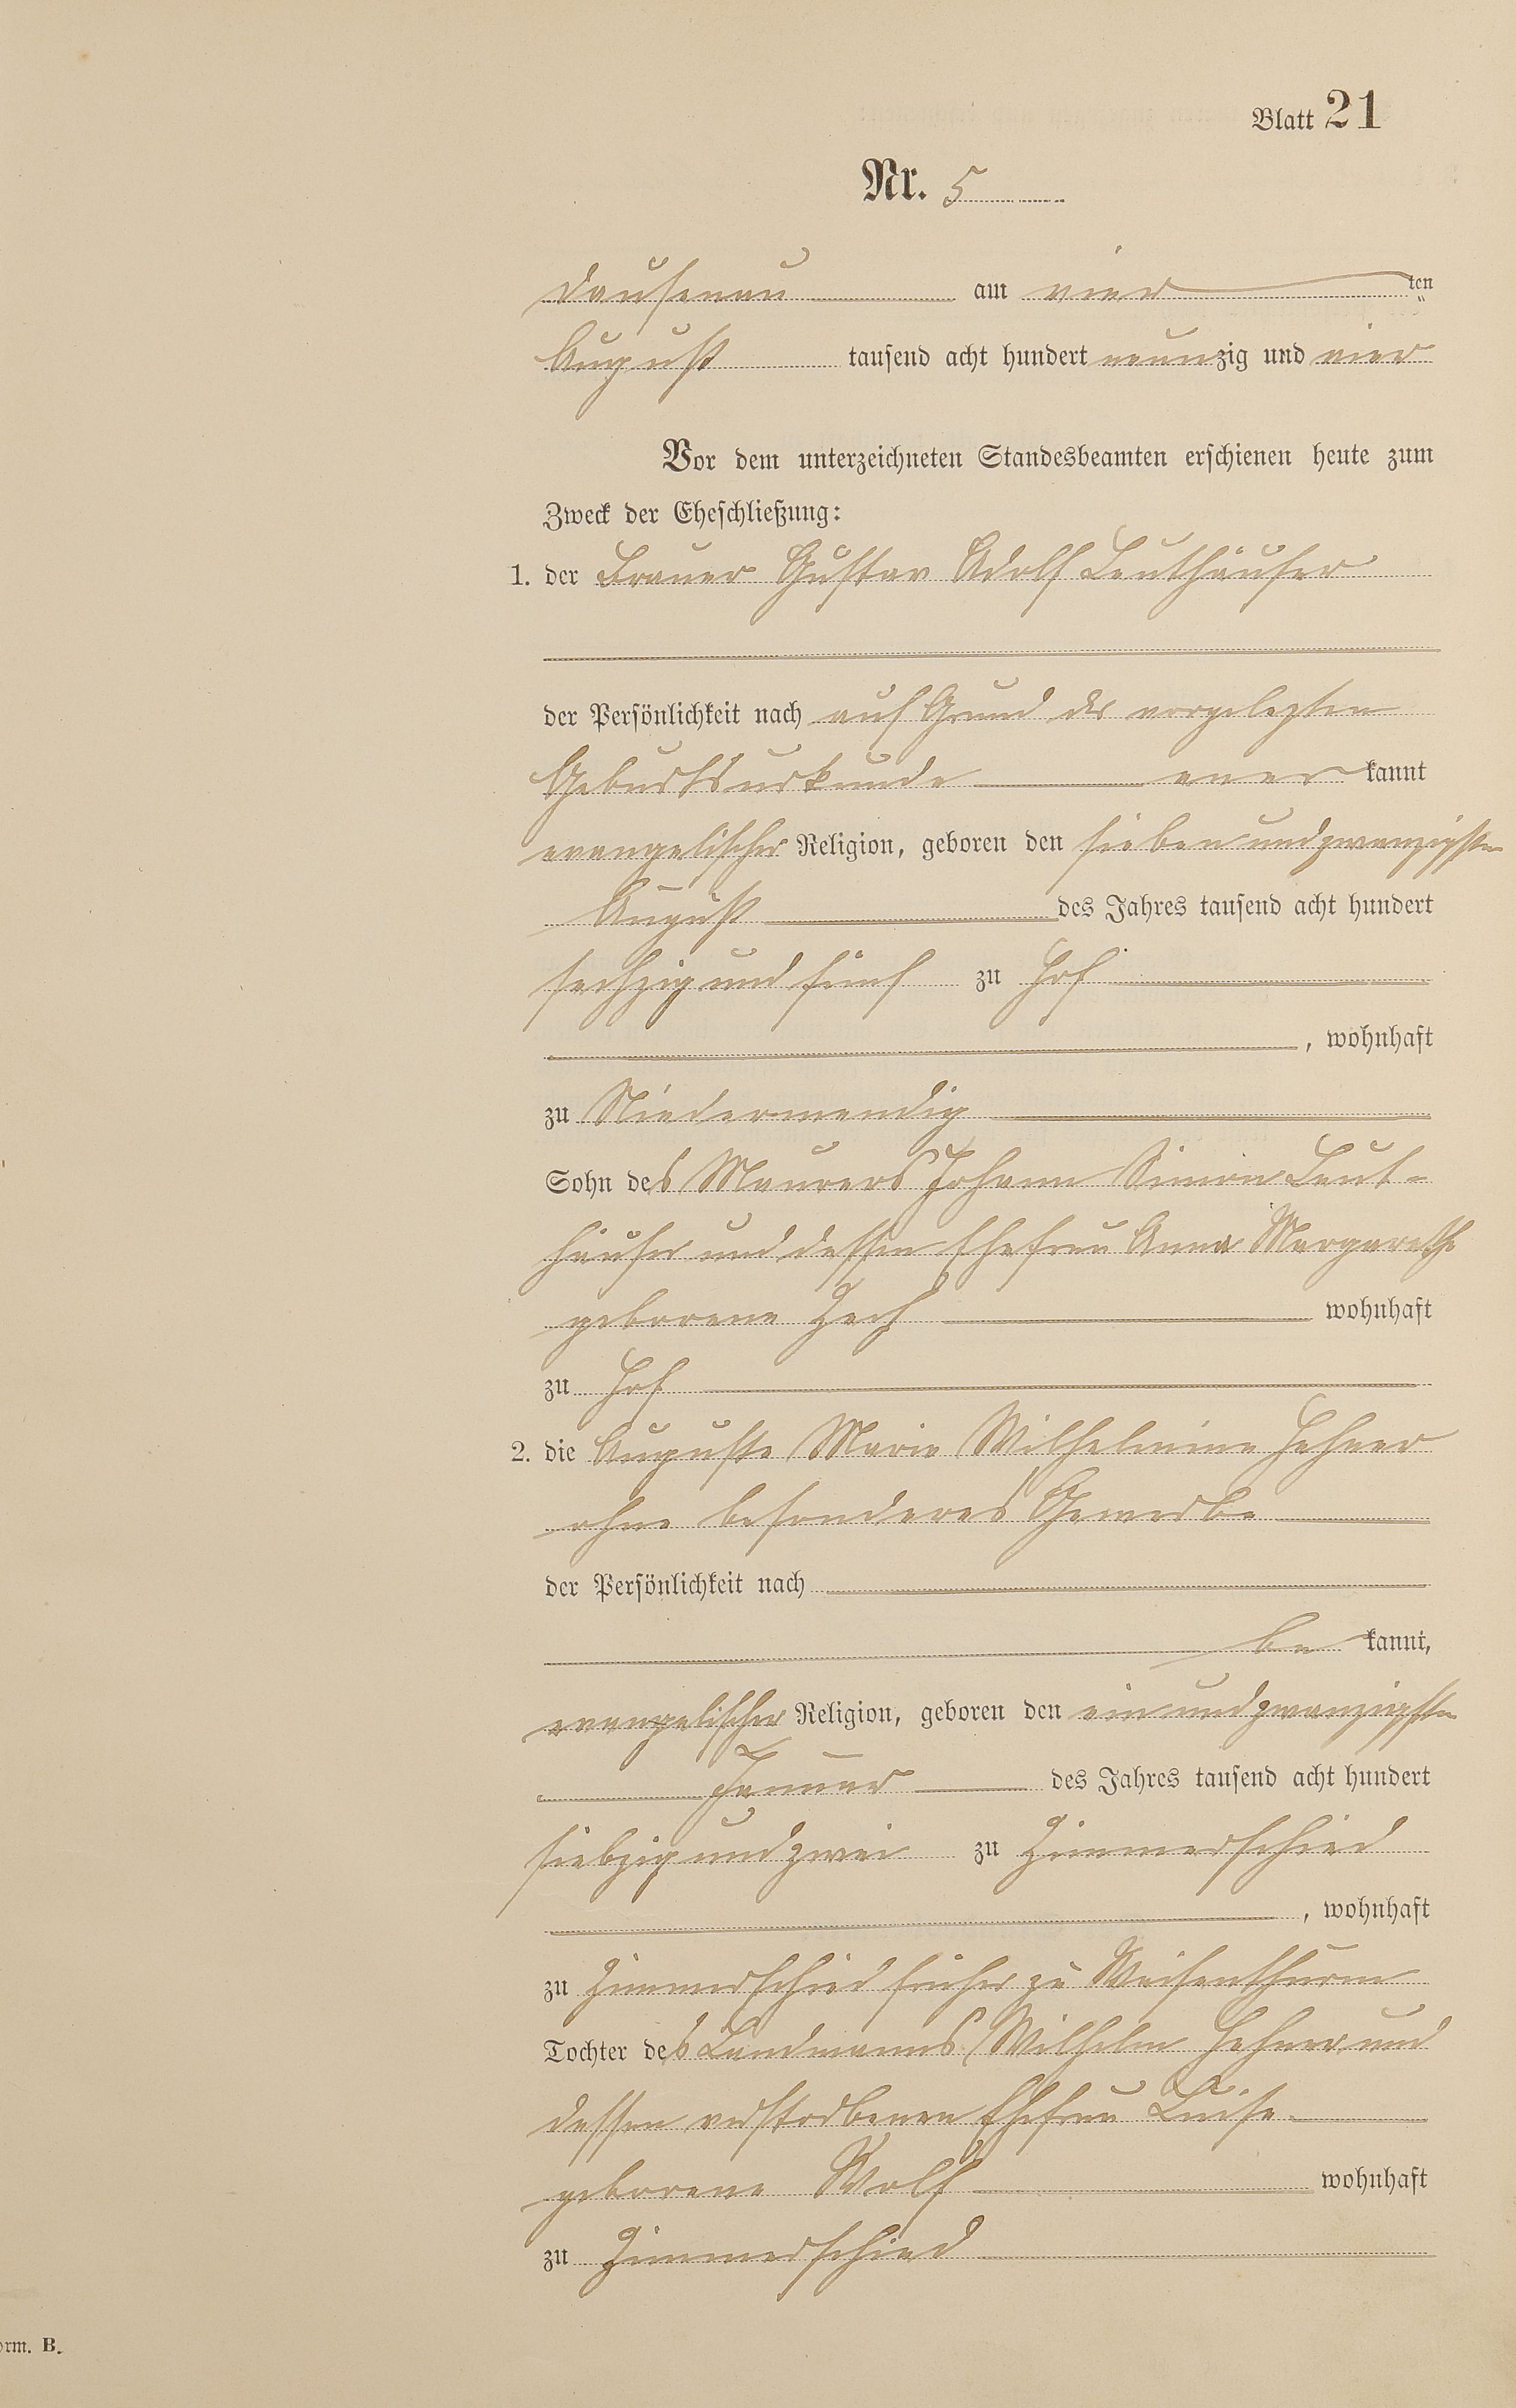 Blatt 21
Nr. 5
Dausenau am vier ten
August tausend acht hundert neunzig und vier
Vor dem unterzeichneten Standesbeamten erschienen heute zum
Zweck der Eheschließung:
1. der Brauer Gustav Adolf Leuthäuser
der Persönlichkeit nach auf Grund der vorgelegten
Geburtsurkunde aner kannt
evangelischer Religion, geboren den siebenundzwanzigsten
August des Jahres tausend acht hundert
sechzig und fünf zu Hof
, wohnhaft
zu Niedermendig
Sohn des Maurers Johann Simon Leut-
häuser und dessen Ehefrau Anna Margarethe
geborene Zech wohnhaft
zu Hof
2. die Auguste Marie Wilhelmine Hehner
ohne besonderes Gewerbe
der Persönlichkeit nach
be kannt,
evangelischer Religion, geboren den einundzwanzigsten
Januar des Jahres tausend acht hundert
siebzig und zwei zu Zimmerschied
, wohnhaft
zu Zimmerschied früher zu Weisenthurm
Tochter des Landmanns Wilhelm Hehner und
dessen verstorbenen Ehefrau Luise
geborene Wolf wohnhaft
zu Zimmerschied
orm. B.